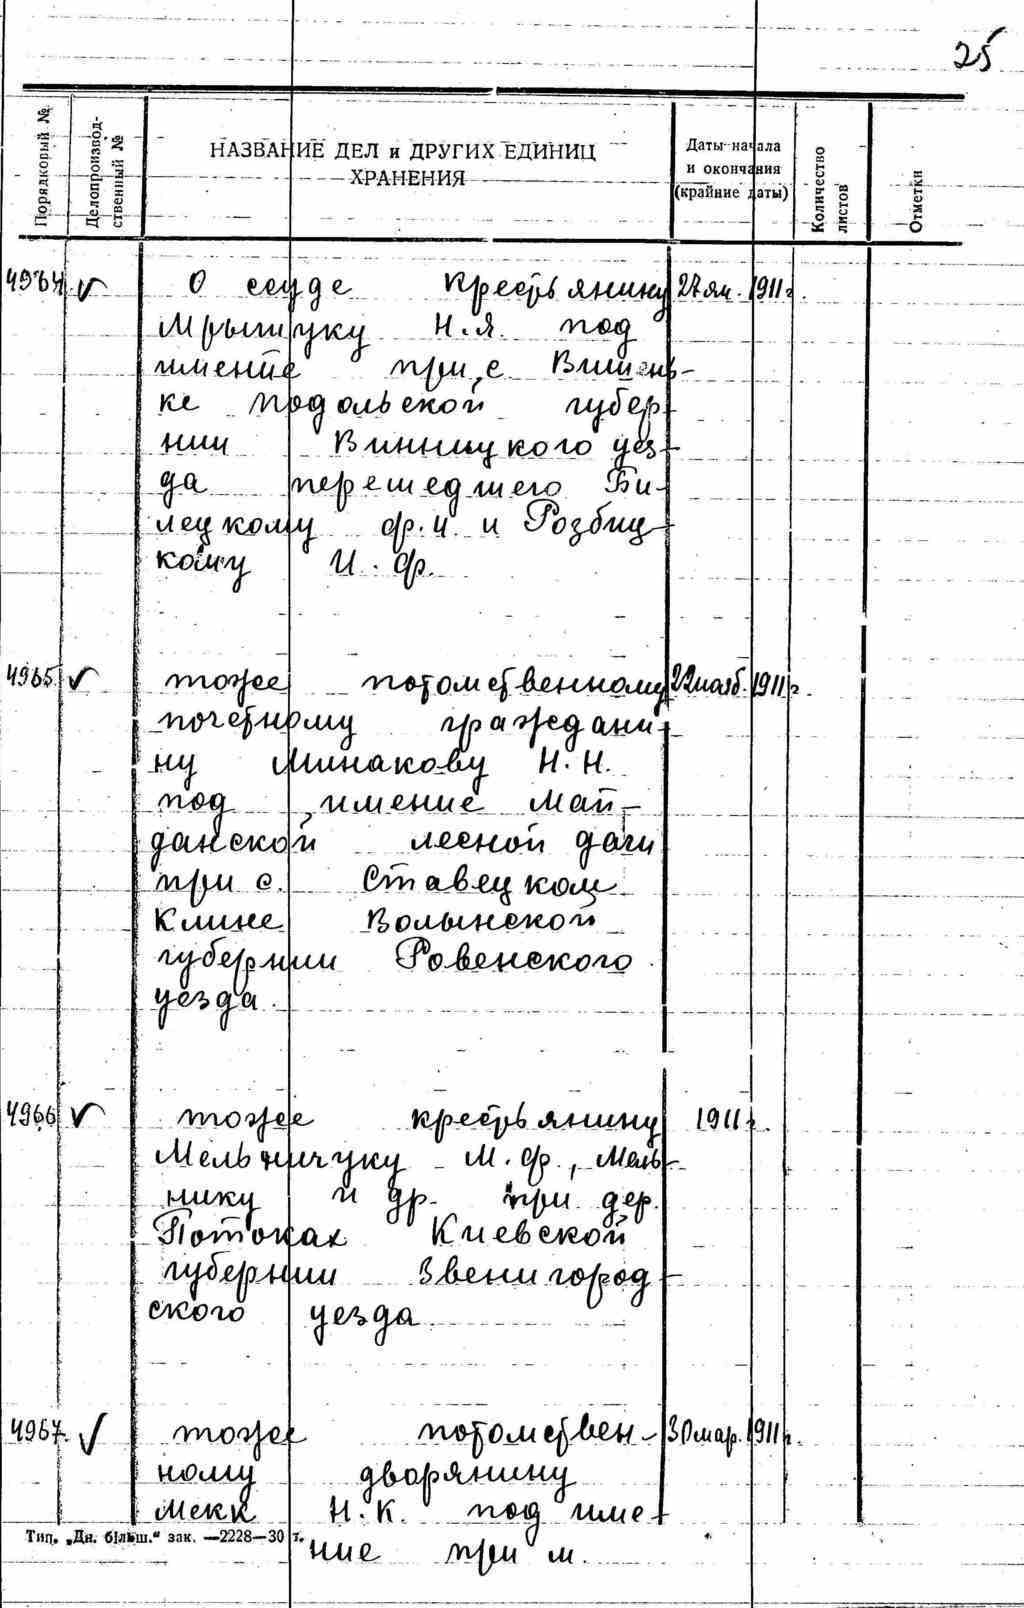 25
Порядковый №
Делопроизвод-
ственный №
НАЗВАНИЕ ДЕЛ и ДРУГИХ ЕДИНИЦ
ХРАНЕНИЯ
Даты начала
и окончания
(крайние даты)
Количество
листов
Отметки
4964 √ О ссуде крестьянину 27 ян. 1911 г.
Мрыщуку Н.Я. под
имение при с Вишень-
ке Подольской губер-
нии Винницкого уез-
да перешедшего Би-
лецкому Ф.И. и Розбиц-
кому И.Ф.
4965. √ тоже потомственному 22 нояб. 1911 г.
почетному граждани-
ну Минакову Н.Н.
под имение Май-
данской лесной дачи
при с. Ставецком
Клине Волынской
губернии Ровенского
уезда.
4966 √ тоже крестьянину 1911 г.
Мельничуку М.Ф., Мель-
нику и др. при дер.
Потоках Киевской
губернии Звенигород-
ского уезда.
4967. √ тоже потомствен- 30 мар. 1911 г.
ному дворянину
Мекк Н.К. под име-
Тип. „Дн. більш." зак. —2228—30 т.
ние при м.